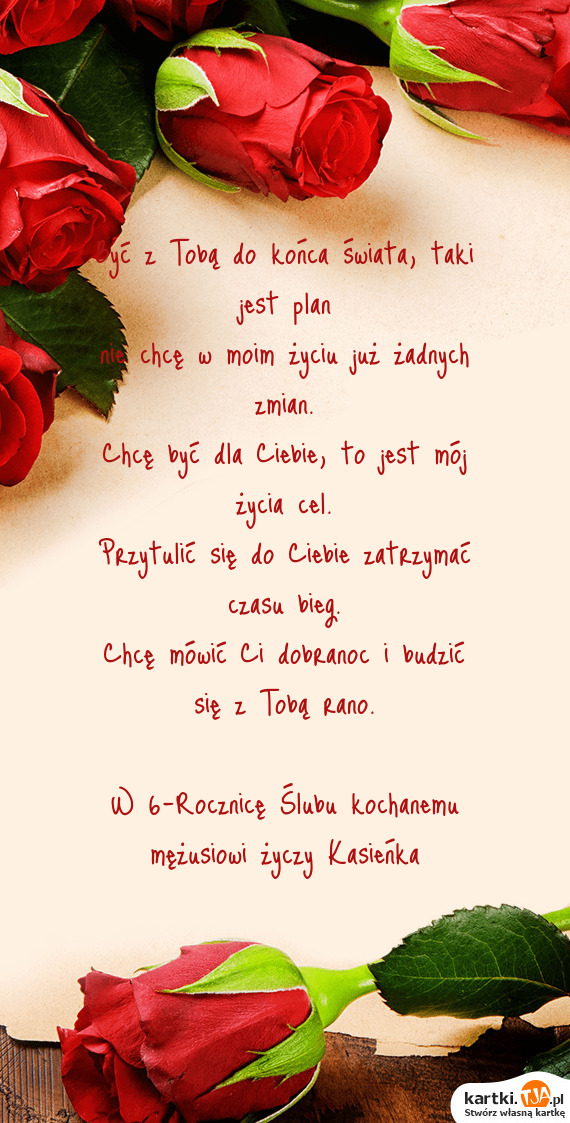 Być z Tobą do końca świata, taki
jest plan
nie chcę w moim życiu już żadnych
zmian.
Chcę być dla Ciebie, to jest mój
życia cel.
Przytulić się do Ciebie zatrzymać
czasu bieg.
Chcę mówić Ci dobranoc i budzić
się z Tobą rano.
W 6-Rocznicę Ślubu kochanemu
mężusiowi życzy Kasieńka
kartki.TJA.pl
Stwórz własną kartkę